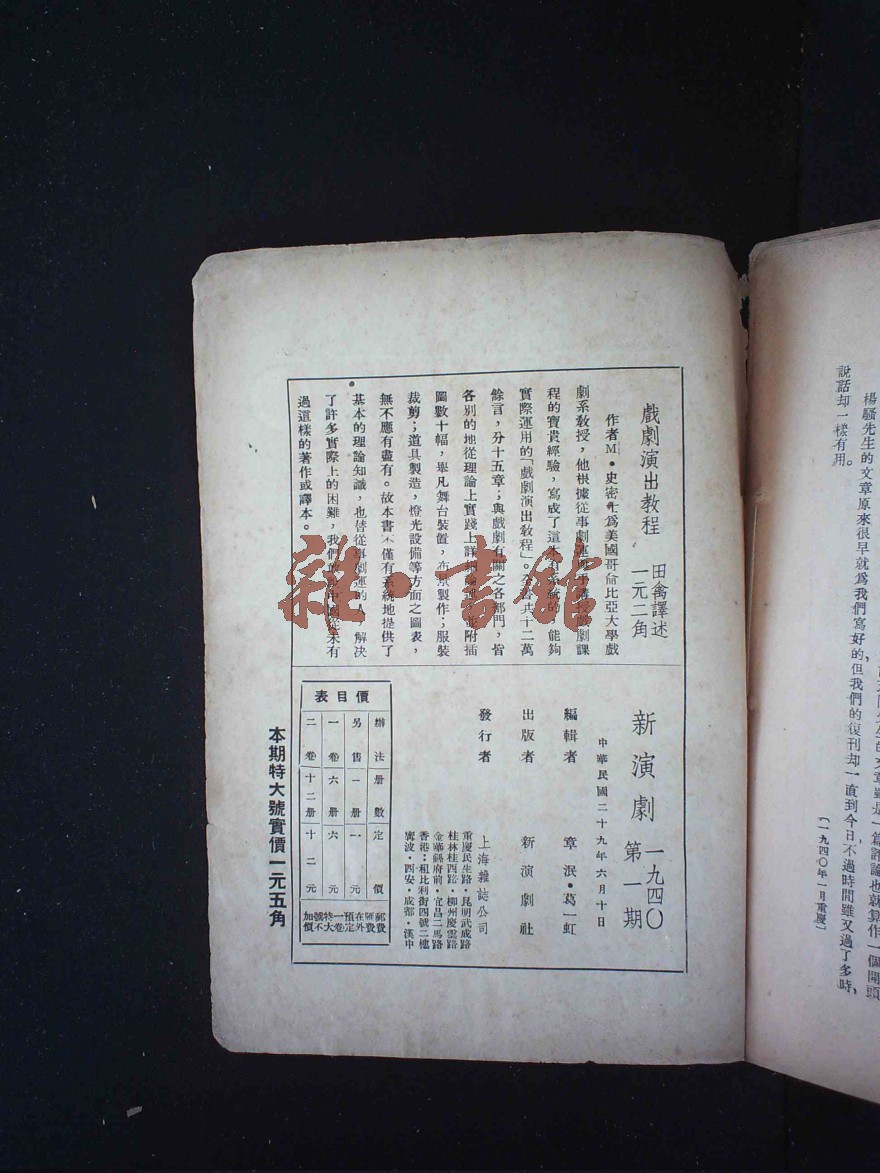 戲劇演出教程 田禽譯述
一元二角
作者M・史密士爲美國哥侖比亞大學戲
劇系敎授，他根據從事劇運與
課
程的寶貴經驗，寫成了這
能夠
實際運用的「戲劇演出敎程」。全書共十二萬
餘言，分十五章；與戲劇有關之各部門，皆
各別的地從理論上實踐上詳
附插
圖數十幅，舉凡舞台裝置，布景製作；服裝
裁剪；道具製造，燈光設備等方面之圖表，
無不應有盡有。故本書不僅有系統地提供了
基本的理論知識，也替從事劇運的人，解決
了許多實際上的困難，我們
未有
過這樣的著作或譯本。
新演劇 一九四〇
第一期
中華民國二十九年六月十日
編輯者 章泯・葛一虹
出版者 新演劇社
發行者 上海雜誌公司
重慶民生路・昆明武成路
桂林桂西路・柳州慶雲路
金華縣府前・宜昌二馬路
香港：租比利街四號二樓
寧波・西安・成都・漢中
價目表
辦法 册數 定價
另售 一册 一元
一卷 六册 六元
二卷 十二册 十二元
郵費匯費
在外預定
一卷特大
號不加價
本期特大號實價一元五角
楊騷先生的文章原來很早就爲我們寫好的但我們的復刊却一直到今日不過時間雖又過了多時，
說話却一樣有用。
〔一九四〇年一月重慶〕
雜・書館